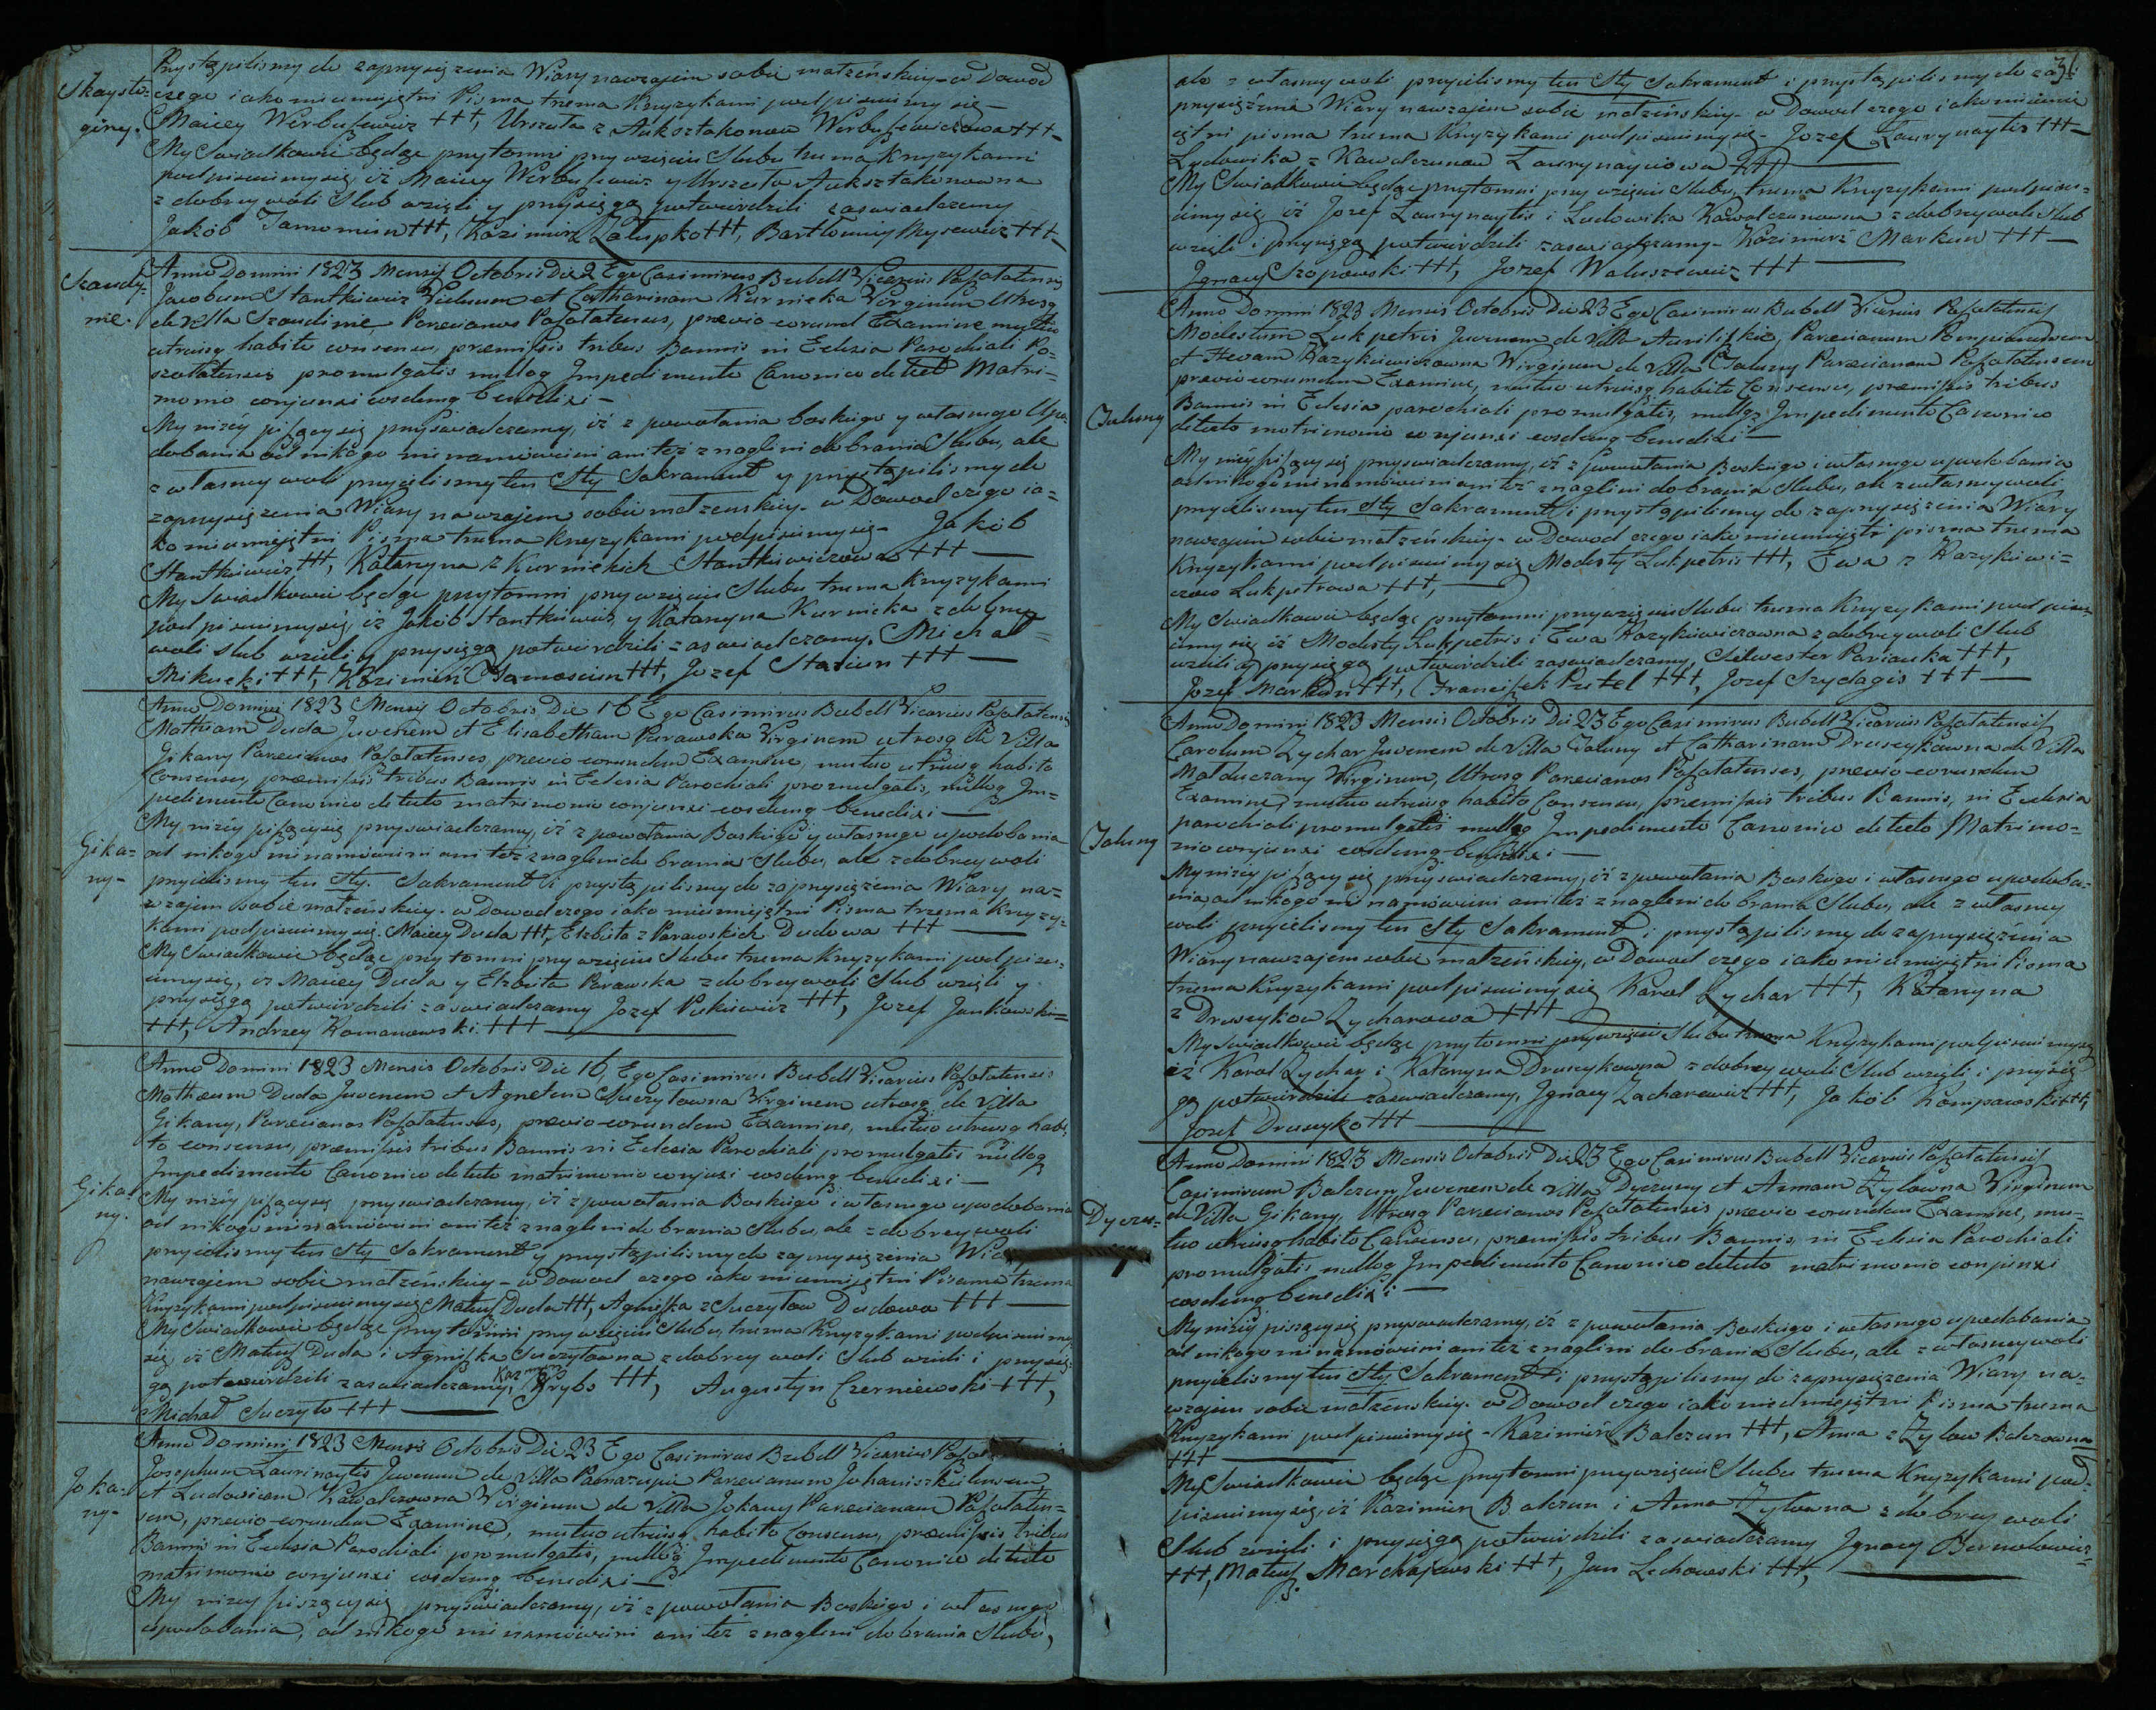 Skaysto=
giry.
Przystąpilismy do zaprzysiężenia Wiary nawzajem sobie małżeńskiey w Dowod
czego iako nieumiejętni Pisma trzema Krzyżykami podpisuiemy się —
Maiiey Werbusewicz +++, Urszula z Auksztakonow Werbusewiczowa +++ —
My Swiadkowie będąc przytomni przy wzięciu Slubu trzema Krzyżykami
podpisuiemy się, iż Maiiey Werbusewicz y Urszula Auksztakonowna
z dobrey woli Slub wzięli y przysięgą potwierdzili zaswiadczamy
Jakob +++, Kazimierz Załupko +++, Bartłomiey +++ —
Szaudy-
nie.
Anno Domini 1823 Mensis Octobris Die 2 Ego Casimirus Bubell Vicarius Pozołatensis
Jacobum Stantkiewicz Viduum et Catharinam Kurnicka Virginem Utrosq
de Villa Szaudinie Parecianos Pozołatenses, prævio eorumd Examine mutuo
utriusq habito consensu, præmissis tribus Bannis in Eclesia Parochiali Po=
zołatensis promulgatis nulloq Impedimento Canonico detecto Matri=
monio conjunxi eosdemq benedixi —
My niżey piszący się przyswiadczamy, iż z powołania boskiego y własnego Upo-
dobania od nikogo nie namówieni ani też znagleni do brania Slubu, ale
z własney woli przyielismy ten Sty Sakrament y przystąpilismy do
zaprzysiężenia Wiary nawzajem sobie małżenskiey. w Dowod czego ia=
ko nieumiejętni Pisma trzema Krzyżykami podpisuiemy się — Jakób
Stantkiewicz +++, Katarzyna z Kurnickich Stantkiewiczowa +++ —
My Swiadkowie będąc przytomni przy wzięciu Slubu trzema Krzyżykami
podpisuiemy się, iż Jakób Stantkiewicz y Katarzyna Kurnicka z dobrey
woli Slub wzieli y przysięgą potwierdzili zaswiadczamy. Michał
Mikucki +++, Kazimierz +++, Jozef Stasiun +++ —
Gika=
ny-
Anno Domini 1823 Mensis Octobris Die 16 Ego Casimirus Bubell Vicarius Pozołatensis
Mathiam Duda Juvenem et Elisabetham Parawska Virginem utrosq de Villa
Gikany Parecianos Pozołatenses, prævio eorundem Examine, mutuo utriusq habito
Consensu, præmissis tribus Bannis in Eclesia Parochiali promulgatis, nulloq Im=
pedimento Canonico detecto matrimonio conjunxi eosdemq benedixi —
My niżey piszący się przyswiadczamy, iż z powołania Boskiego y własnego upodobania
od nikogo nie namówieni ani też znagleni do brania Slubu, ale z dobrey woli
przyielismy ten Sty. Sakrament i przystąpilismy do zaprzysiężenia Wiary na=
wzajem sobie małżeńskiey. w Dowod czego iako nieumiejętni Pisma trzema Krzyży-
kami podpisuiemy się. Maiiey Duda +++, Elzbieta z Parawskich Dudowa +++ —
My Swiadkowie będąc przytomni przy wzięciu Slubu trzema Krzyżykami podpisu-
iemy się, iż Maiiey Duda y Elzbieta Parawska z dobrey woli Slub wzięli y
przysięgą potwierdzili zaswiadczamy Jozef Pukiewicz +++, Jozef Jankowski
+++, Andrzey Romanowski +++ —
Gika-
ny.
Anno Domini 1823 Mensis Octobris Die 16, Ego Casimirus Bubell Vicarius Pozołatensis
Mathæum Duda Juvenem et Agnetem Suczyłowna Virginem utrosq de Villa
Gikany, Parecianos Pozołatenses, prævio eorundem Examine, mutuo utriusq habi-
to consensu, præmissis tribus Bannis in Eclesia Parochiali promulgatis nulloq
Impedimento Canonico detecto matrimonio conjuxi eosdemq benedixi —
My niżey piszący się przyswiadczamy, iż z powołania Boskiego i własnego upodobania
od nikogo nie namówieni ani też znagleni do brania Slubu, ale z dobrey woli
przyielismy ten Sty Sakrament y przystąpilismy do zaprzysiężenia
nawzajem sobie małżeńskiey — w Dowod czego iako nieumiejętni Pisma trzema
Krzyżykami podpisuiemy się Mateusz Duda +++, Agnieszka z Suczyłow Dudowa +++ —
My Swiadkowie będąc przytomni przy wzięciu Slubu, trzema Krzyżykami podpisuiemy
się, iż Mateusz Duda i Agnieszka Suczyłowna z dobrey woli Slub wzieli i przysię-
gą potwierdzili zaswiadczamy, Kazimierz Grybo +++, Augustyn Czerniewski +++,
Michał Suczyło +++ —
Joka-
ny-
Anno Domini 1823 Mensis Octobris Die 23 Ego Casimirus Bubell Vicarius
Josephum Laurinaytis Juvenem de Villa Parecianum Johaniszkielensem
et Ludovicam Kowalczowna Virginem de Villa Jokany Parecianam Pozołaten=
sem, prævio eorundem Examine, mutuo utriusq habito Consensu, præmissis tribus
Bannis in Eclesia Parochiali promulgatis, nulloq Impedimento Canonico detecto
matrimonio conjunxi eosdemq benedixi —
My niżey piszący się przyswiadczamy, iż z powołania Boskiego i własnego
upodobania, od nikogo nie namówieni ani też znagleni do brania Slubu,
31
ale z własney woli przyielismy ten Sty Sakrament i przystąpilismy do za
przysiężenia Wiary nawzajem sobie małżeńskiey — w Dowod czego iako nieumie
iętni pisma trzema Krzyżykami podpisuiemy się — Jozef Laurynaytis +++ —
Ludowika z Kawalczunow Laurynayciowa +++ —
My Swiadkowie będąc przytomni przy wzięciu Slubu, trzema Krzyżykami podpisu=
iemy się iż Jozef Laurynaytis i Ludowika Kawalczunowna z dobrey woli Slub
wzięli i przysięgą potwierdzili zaswiadczamy — Kazimierz Markun +++ —
Jgnacy Szopowski +++, Jozef Waluszewicz +++ —
Jaluny
Anno Domini 1823 Mensis Octobris Die 23 Ego Casimirus Bubell Vicarius Pozołatensis
Modestum Lukpetris Juvenem de Villa Parecianum Pompianensem
et Hevam Razykiewiczowna Virginem de Villa Jaluny Parecianam Pozołatensem
prævio eorundem Examine, mutuo utriusq habito Consensu, præmissis tribus
Bannis in Eclesia parochiali promulgatis, nulloq Impedimento Canonico
detecto matrimonio conjunxi eosdemq benedixi —
My niżey piszący się przyswiadczamy, iż z powołania Boskiego i własnego upodobania
od nikogo nie namówieni ani też znagleni do brania Slubu, ale z własney woli
przyielismy ten Sty Sakrament i przystąpilismy do zaprzysiężenia Wiary
nawzajem sobie małżeńskiey — w Dowod czego iako nieumiejętni pisma trzema
Krzyżykami podpisuiemy się Modesty Lukpetris +++, Ewa z Razykiewi=
czow Lukpetrowa +++, —
My Swiadkowie będąc przytomni przy wzięciu Slubu trzema Krzyżykami podpisu
iemy się iż Modesty Lukpetris i Ewa Razykiewiczowna z dobrey woli Slub
wzieli y przysięgą potwierdzili zaswiadczamy, Silwester Pariauka +++,
Jozef Markun +++, Franciszek Putel +++, Jozef Szydagis +++ —
Jaluny
Anno Domini 1823 Mensis Octobris Die 23 Ego Casimirus Bubell Vicarius Pozołatensis
Carolum Zychar Juvenem de Villa Jaluny et Catharinam Druseykowna de Villa
Małduczany Virginem, Utrosq Parecianos Pozołatenses, prævio eorundem
Examine, mutuo utriusq habito Consensu, præmissis tribus Bannis, in Eclesia
parochiali promulgatis nulloq Impedimento Canonico detecto Matrimo=
nio conjunxi eosdemq benedixi —
My niżey piszący się przyswiadczamy, iż z powołania Boskiego i własnego upodoba-
nia, od nikogo nie namówieni ani też znagleni do brania Slubu, ale z własney
woli przyielismy ten Sty Sakrament i przystąpilismy do zaprzysiężenia
Wiary nawzajem sobie małżeńskiey, w Dowod czego iako nieumiejętni Pisma
trzema Krzyżykami podpisuiemy się Karol Zychar +++, Katarzyna
z Druseykow Zycharowa +++ —
My Swiadkowie będąc przytomni przy wzięciu Slubu trzema Krzyżykami podpisuiemy się
iż Karol Zychar i Katarzyna Druseykowna z dobrey woli Slub wzięli i przysię
gą potwierdzili zaswiadczamy, Jgnacy Zacharewicz +++, Jakób Kompawski +++,
Jozef Druseyko +++ —
Dyczu-
ny
Anno Domini 1823 Mensis Octobris Die 23 Ego Casimirus Bubell Vicarius Pozołatensis
Casimirum Balczun Juvenem de Villa Dyczuny et Annam Zyłowna Virginem
de Villa Gikany, Utrosq Parecianos Pozołatenses prævio eorundem Examine, mu=
tuo utriusq habito Consensu, præmissis tribus Bannis, in Eclesia Parochiali
promulgatis nulloq Impedimento Canonico detecto matrimonio conjunxi
eosdemq benedixi —
My niżey piszący się przyswiadczamy, iż z powołania Boskiego i własnego upodobania
od nikogo nie namówieni ani też znagleni do brania Slubu, ale z własney woli
przyielismy ten Sty Sakrament i przystąpilismy do zaprzysiężenia Wiary na=
wzajem sobie małżenskiey. w Dowod czego iako nieumiejętni Pisma trzema
Krzyżykami podpisuiemy się — Kazimierz Balczun +++, Anna z Zyłow Balczowna
+++ —
My Swiadkowie będąc przytomni przy wzięciu Slubu trzema Krzyżykami pod-
pisuiemy się, iż Kazimierz Balczun i Anna Zyłowna z dobrey woli
Slub wzięli i przysięgą potwierdzili zaswiadczamy Jgnacy Bernatowicz
+++, Mateusz Marchajewski +++, Jan Lechowski +++, —